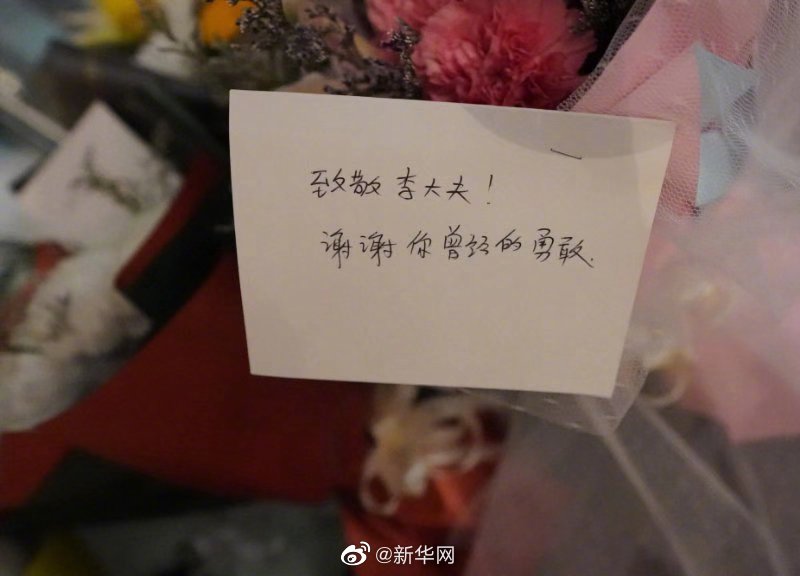 致敬李大夫!
谢谢你曾经的勇敢.
@新华网